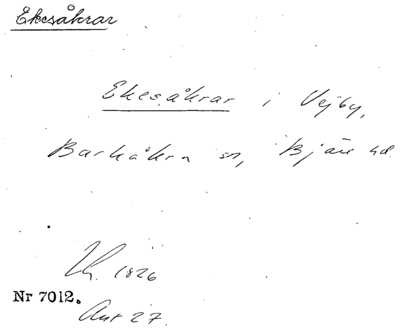 Ekesåkrar
Ekesåkrar i Vejby,
Barkåkra sn, Bjäre hd.
1826
Nr 7012.
Akt 27.